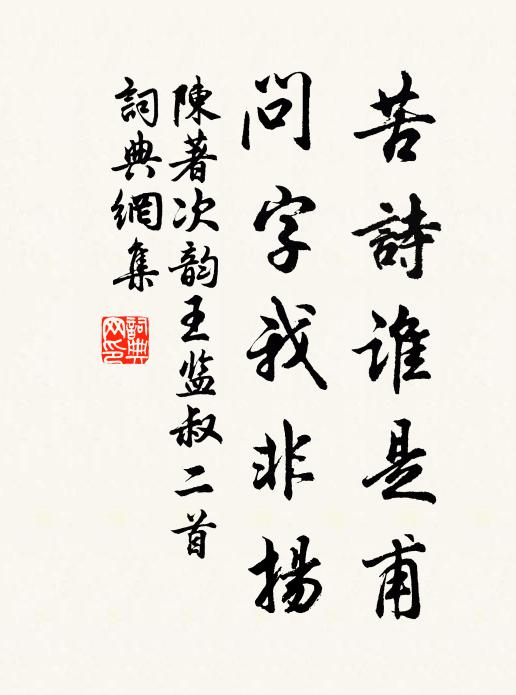 苦詩誰是甫
問字我非揚
陳著次韵王监叔二首
詞典網集
詞典网印